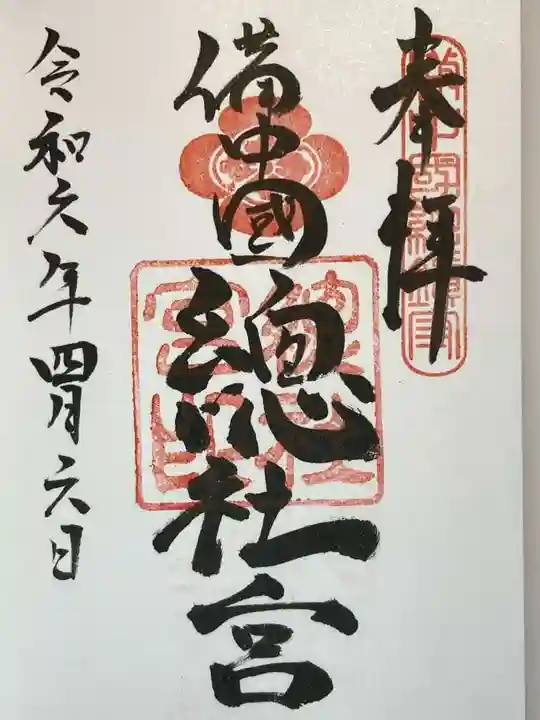 奉拝
備中國總社宮
令和六年四月六日